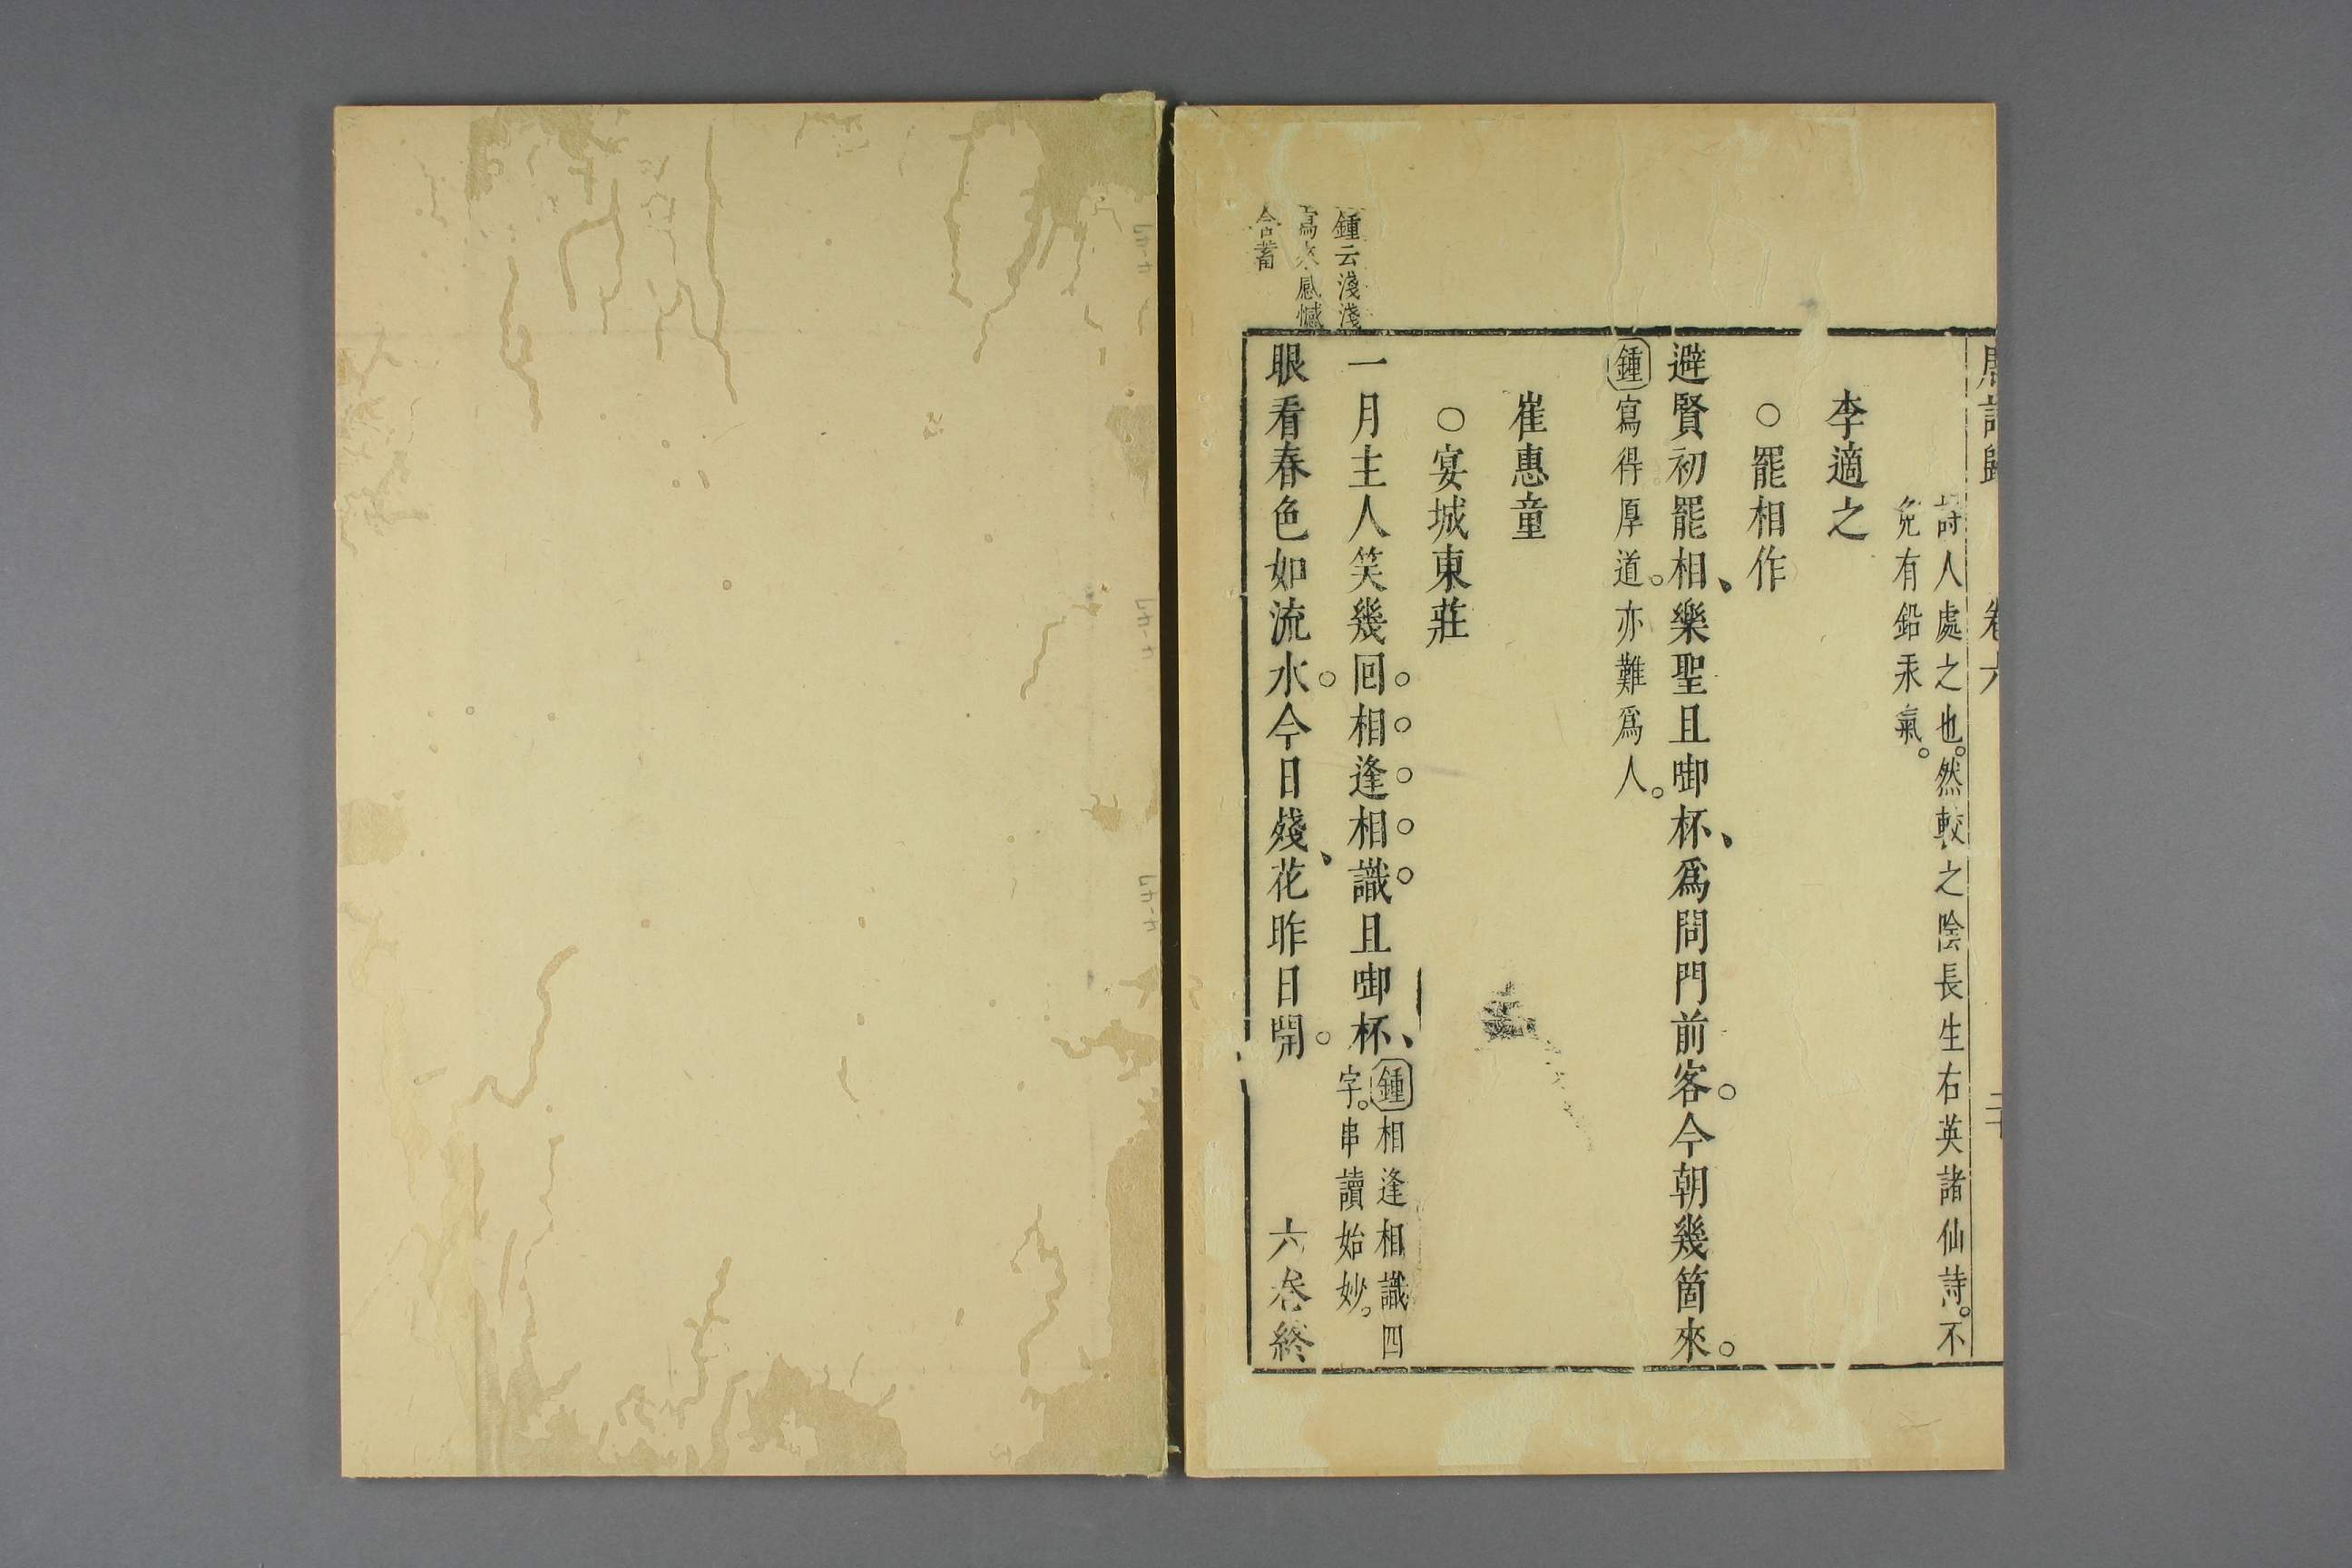 唐詩歸　卷六
詩人處之也。然較之陰長生右英諸仙詩。不
免有鉛汞氣。
李適之
○罷相作
避賢初罷相、樂聖且啣杯、爲問門前客。今朝幾箇來。
鍾寫得厚道。亦難爲人。
崔惠童
○宴城東莊
一月主人笑幾回。相逢相識且啣杯、
鍾相逢相識四
字。串讀始妙。
眼看春色如流水。今日殘、花昨日開。
六卷終
鍾云淺淺
寫來感憾
含蓄